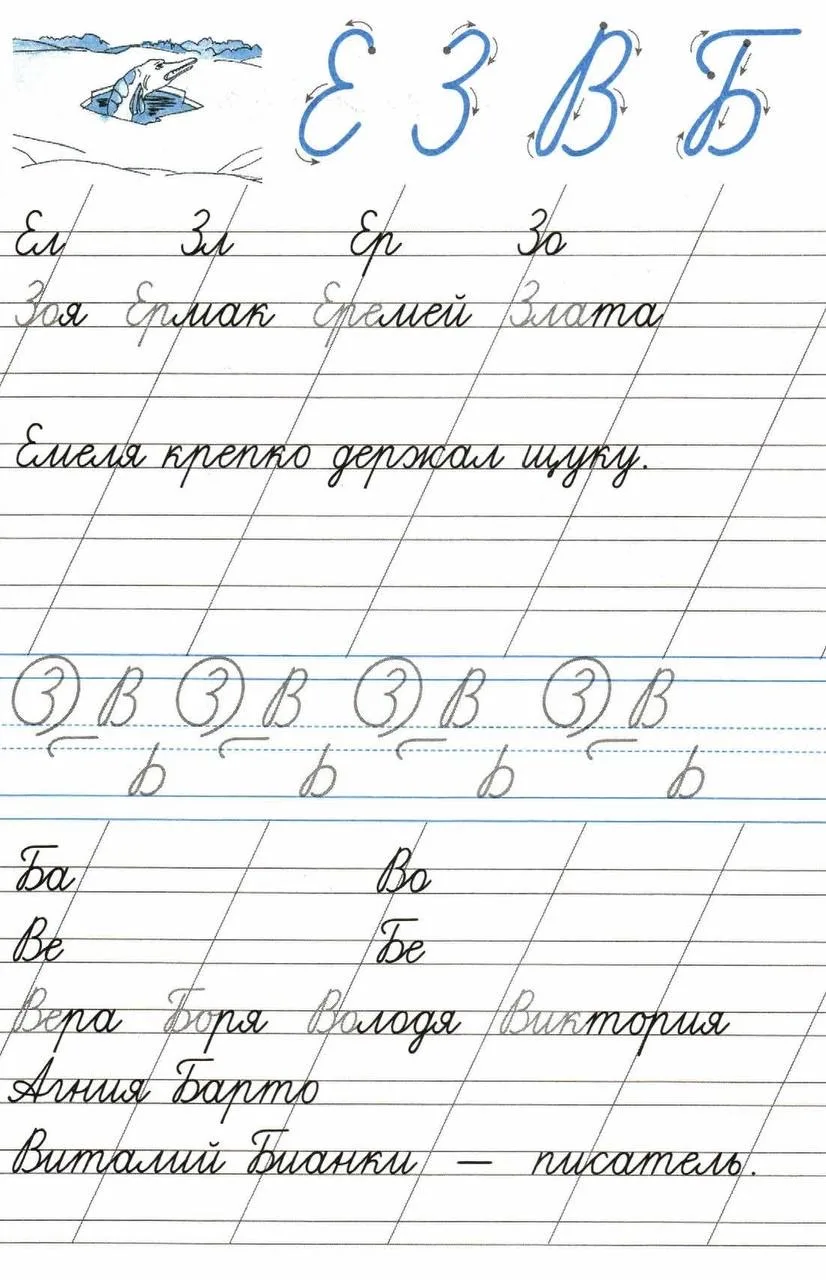 Е З В Б
Ел Зл Ер Зо
Зоя Ермак Еремей Злата
Емеля крепко держал щуку.
З В З В З В З В
ь ь ь ь
Ба Во
Ве Бе
Вера Боря Володя Виктория
Агния Барто
Виталий Бианки — писатель.